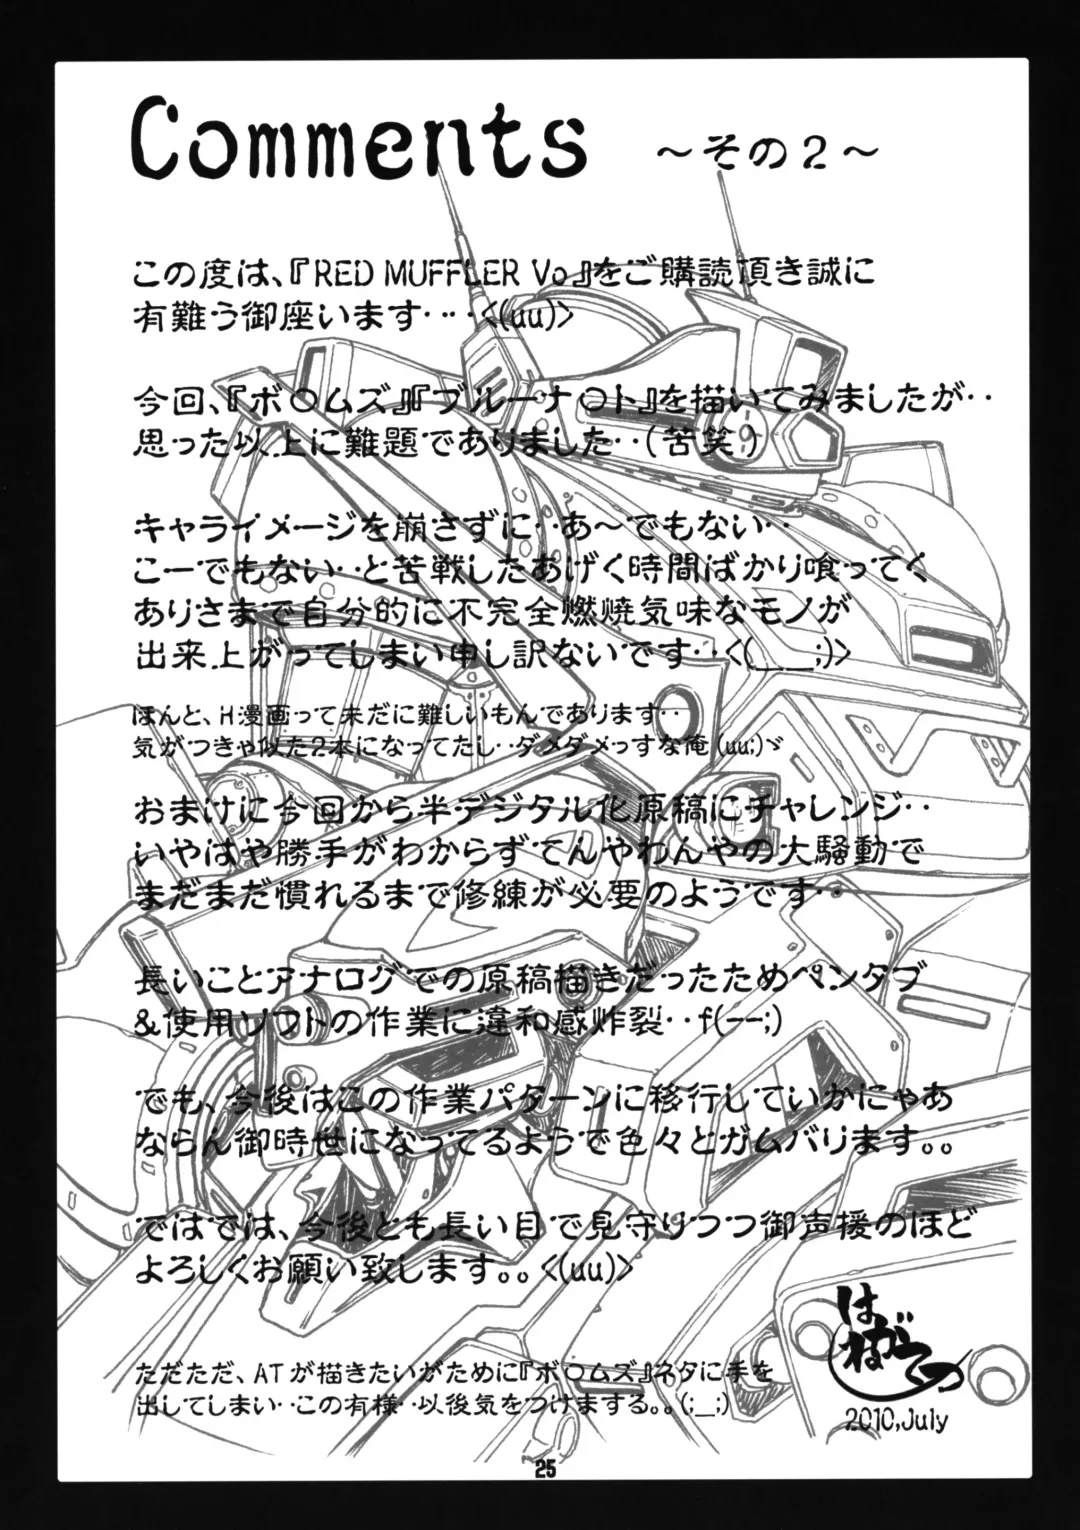 Comments ～その2～
この度は、『RED MUFFLER Vo』をご購読頂き誠に
有難う御座います‥‥<(uu)>
今回、『ボ〇ムズ』『ブルーナ〇ト』を描いてみましたが‥
思った以上に難題でありました‥(苦笑)
キャライメージを崩さずに‥あ～でもない‥
こーでもない‥と苦戦したあげく時間ばかり喰ってく
ありさまで自分的に不完全燃焼気味なモノが
出来上がってしまい申し訳ないです‥<(__;)>
ほんと、H漫画って未だに難しいもんであります‥
気がつきゃ似た2本になってたし‥ダメダメっすな俺(uu;)ゞ
おまけに今回から半デジタル化原稿にチャレンジ‥
いやはや勝手がわからずてんやわんやの大騒動で
まだまだ慣れるまで修練が必要のようです‥
長いことアナログでの原稿描きだったためペンタブ
&使用ソフトの作業に違和感炸裂‥f(--;)
でも、今後はこの作業パターンに移行していかにゃあ
ならん御時世になってるようで色々とガムバります。。
ではでは、今後とも長い目で見守りつつ御声援のほど
よろしくお願い致します。。<(uu)>
ただただ、ATが描きたいがために『ボ〇ムズ』ネタに手を
出してしまい‥この有様‥以後気をつけまする。。(;_;)
2010,July
25